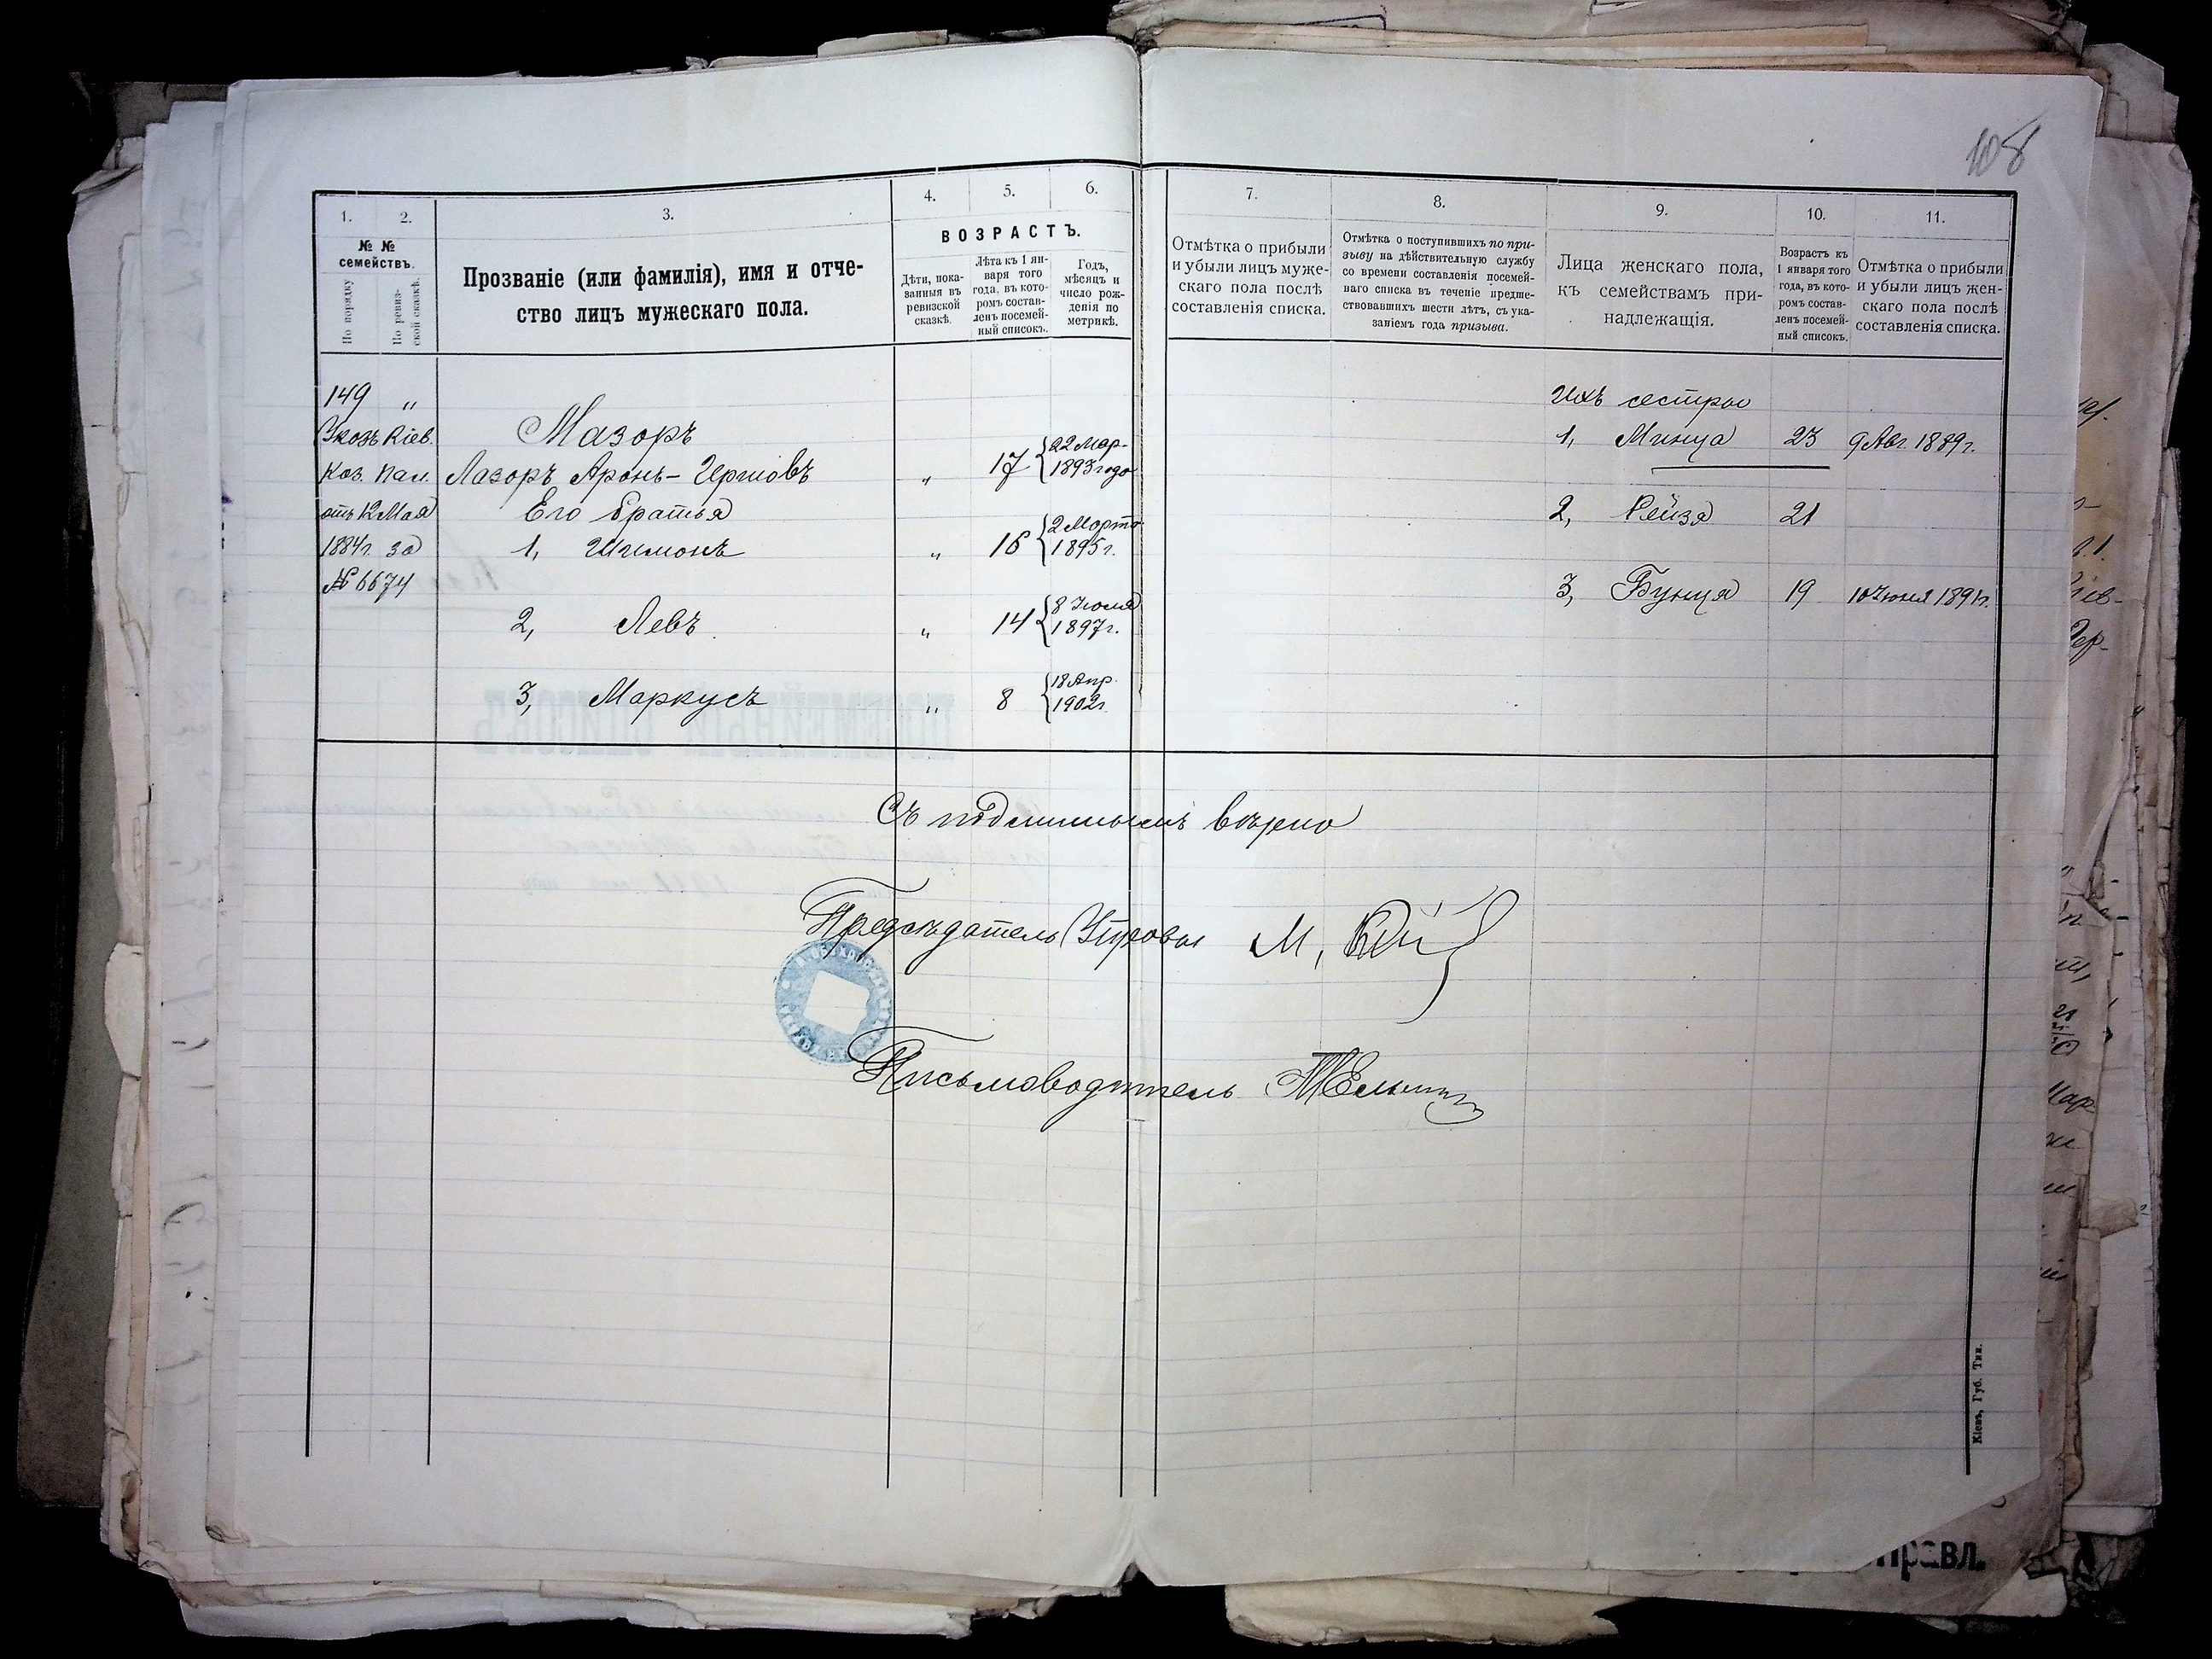 108
1.
2.
3.
4.
5.
6.
7.
8.
9.
10.
11.
№ №
семействъ.
По порядку
По ревиз-
ской сказкѣ.
Прозваніе (или фамилія), имя и отче-
ство лицъ мужескаго пола.
ВОЗРАСТЪ.
Дѣти, пока-
занныя въ
ревизской
сказкѣ.
Лѣта къ 1 ян-
варя того
года, въ кото-
ромъ состав-
ленъ посемей-
ный списокъ.
Годъ,
мѣсяцъ и
число рож-
денія по
метрикѣ.
Отмѣтка о прибыли
и убыли лицъ муже-
скаго пола послѣ
составленія списка.
Отмѣтка о поступившихъ по при-
зыву на дѣйствительную службу
со времени составленія посемей-
наго списка въ теченіе предше-
ствовавшихъ шести лѣтъ, съ ука-
заніемъ года призыва.
Лица женскаго пола,
къ семействамъ при-
надлежащія.
Возрастъ къ
1 января того
года, въ кото-
ромъ состав-
ленъ посемей-
ный списокъ.
Отмѣтка о прибыли
и убыли лицъ жен-
скаго пола послѣ
составленія списка.
149 "
Указъ Кіев.
Каз. Пал.
отъ 12 Мая
1884 г. за
№ 6674
Мазоръ
Лазоръ Аронъ-Гершовъ " 17 22 Мар-
1893 года
Его братья
1, Шимонъ " 16 2 Марта
1895 г.
2, Левъ " 14 8 Іюля
1897 г.
3, Маркусъ " 8 18 Апр.
1902 г.
Ихъ сестры
1, Минця 23 9 Авг. 1889 г.
2, Рейзя 21
3, Бунця 19 10 Іюня 1891 г.
Съ подлиннымъ вѣрно
Предсѣдатель Управы М,
Письмоводитель
Кіевъ, Губ. Тип.
правл.